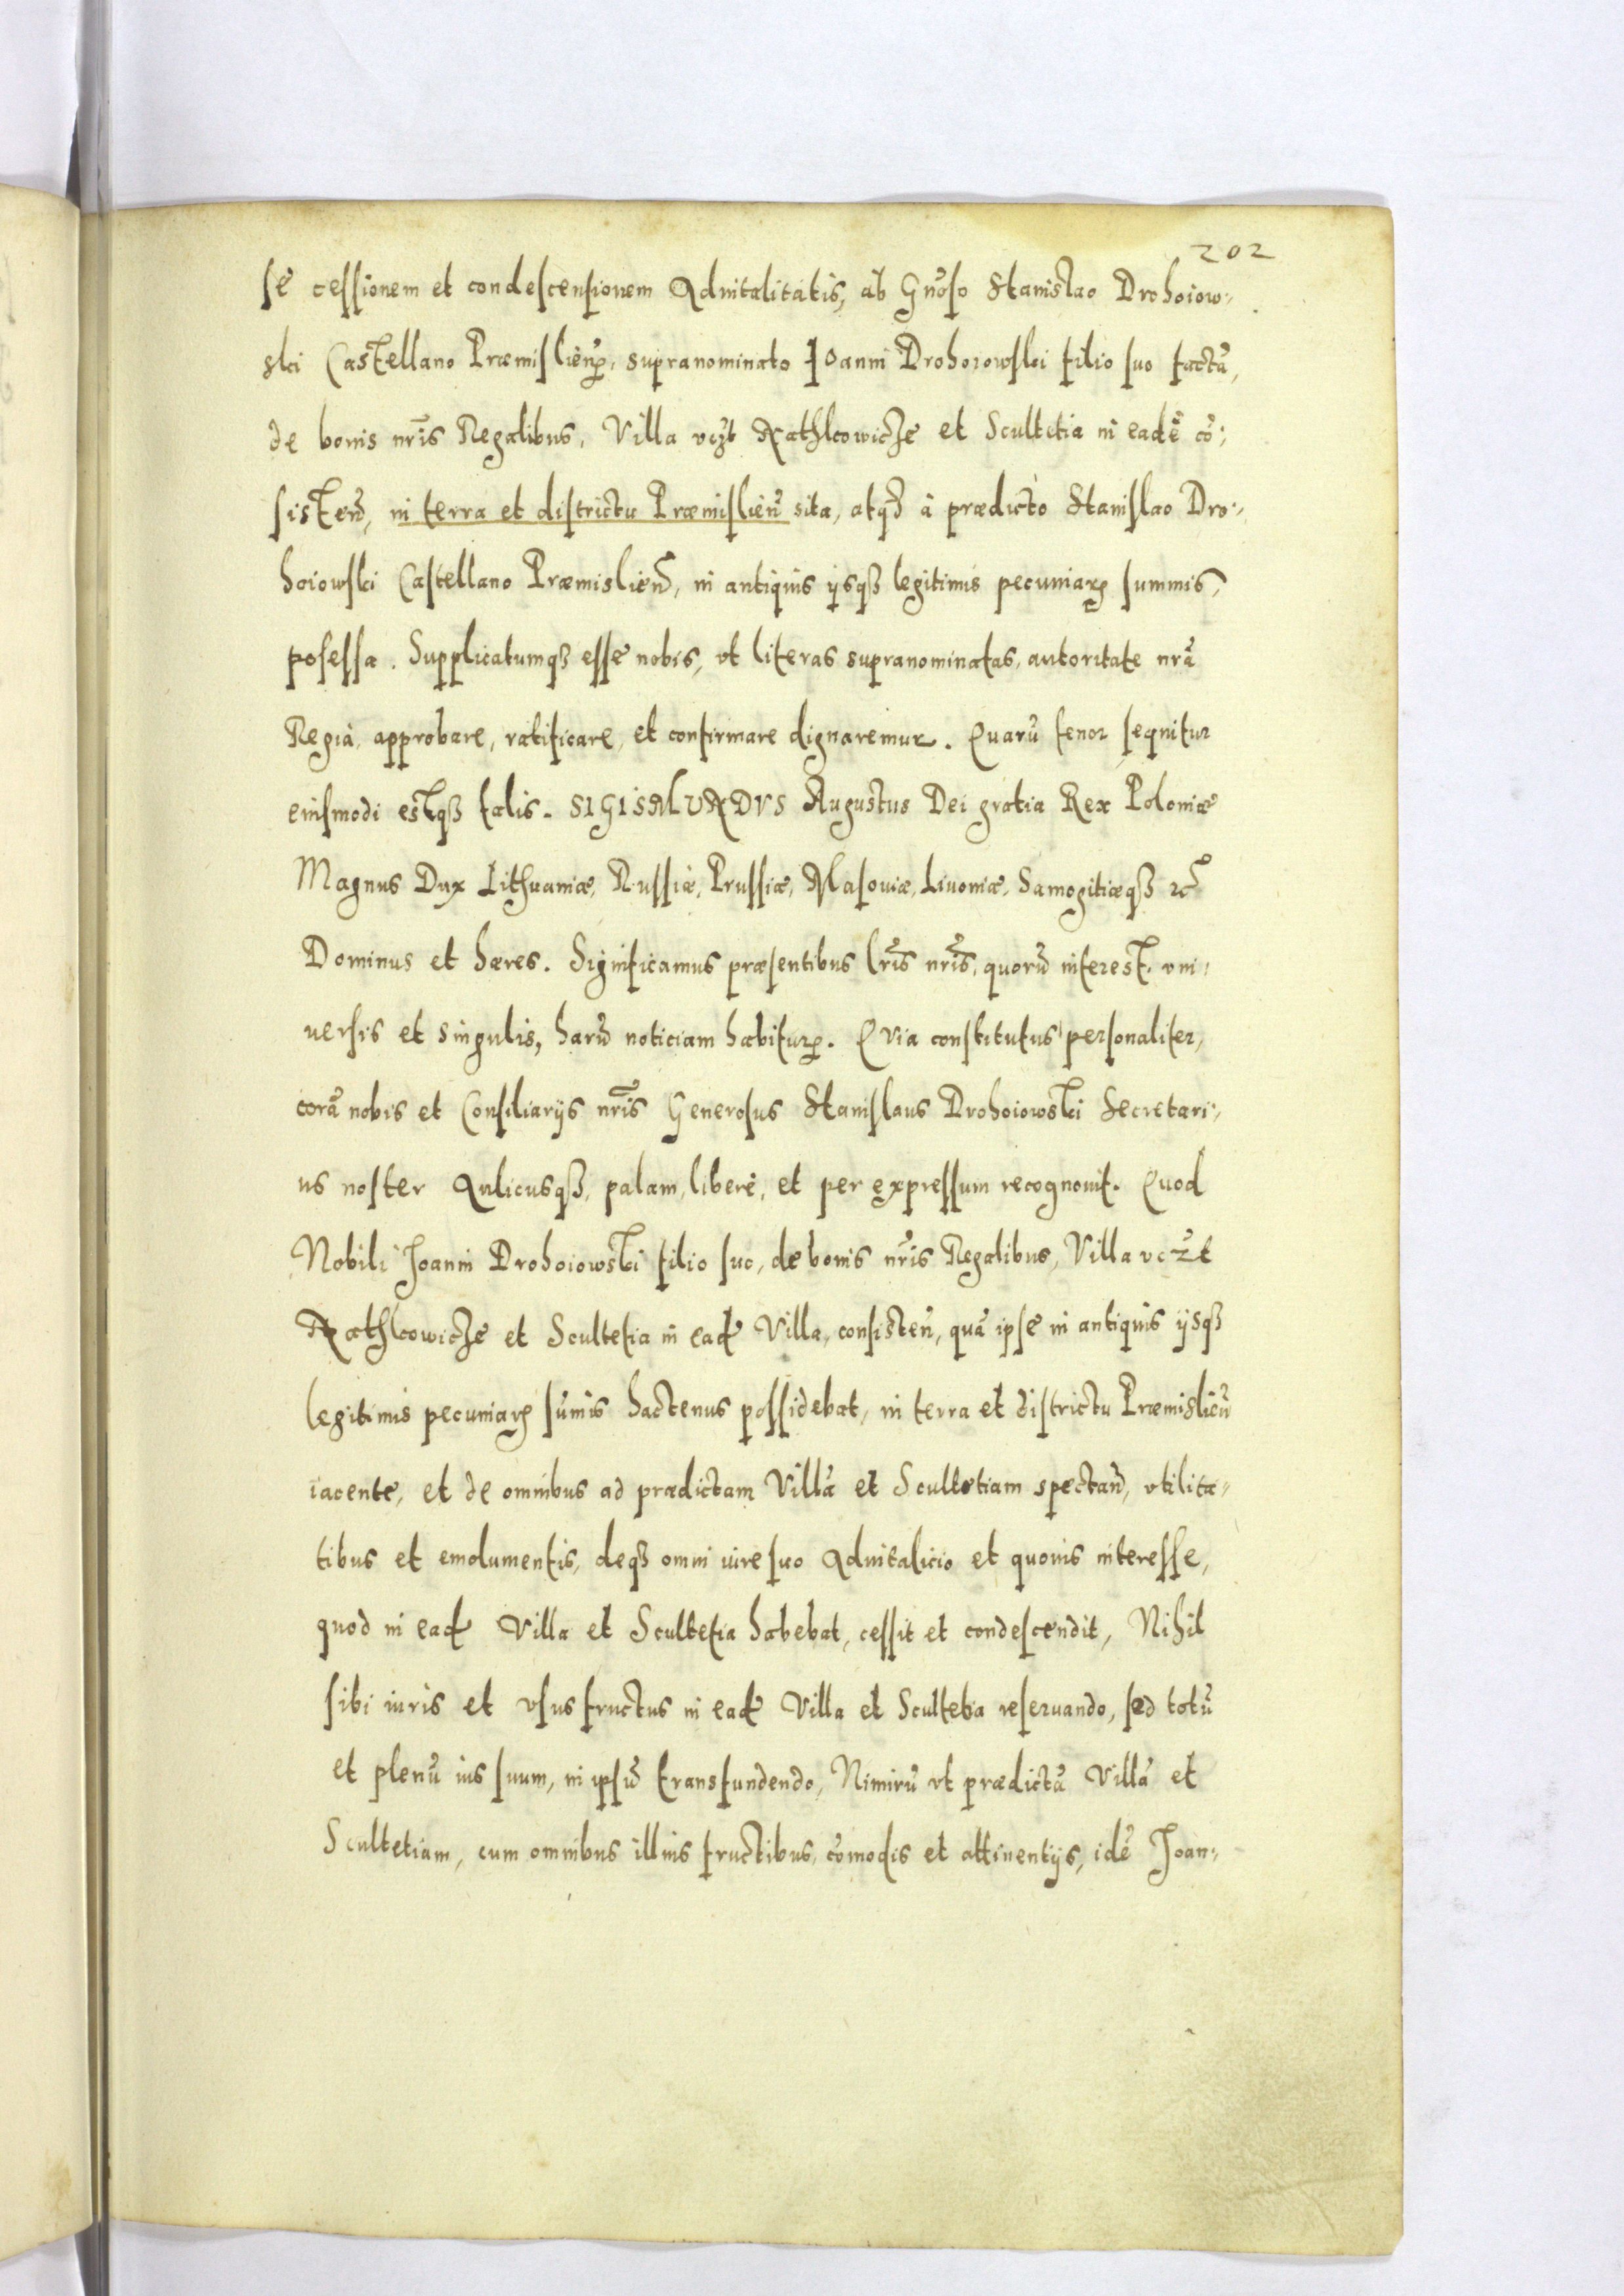 202
se cessionem et condescensionem Aduitalitatis, ab Gnoso Stanislao Drohoiow:
ski Castellano Præmislien, supranominato Ioanni Drohoiowski filio suo factã,
de bonis nris Regalibus, Villa vczt Rathkowicze et Scultetia in eadẽ cõ:
sisten, in terra et districtu Præmislien sita, atqз à prædicto Stanislao Dro:
hoiowski Castellano Præmislien, in antiquis ijsqз legitimis pecuniarꝝ summis,
posessa. Supplicatumqз esse nobis, vt literas supranominatas, autoritate nrã
Regia, approbare, ratificare, et confirmare dignaremur. Quarũ tenor sequitur
eiusmodi estqз talis. SIGISMVNDVS Augustus Dei gratia Rex Poloniæ
Magnus Dux Lithuaniæ, Russiæ, Prussiæ, Masouiæ, Liuoniæ, Samogitiæqз ⁊c
Dominus et hæres. Significamus præsentibus lris nris, quorũ interest. vni:
uersis et singulis, harũ noticiam habiturꝭ. Quia constitutus personaliter,
corã nobis et Consiliarijs nris Generosus Stanislaus Drohoiowski Secretari:
us noster Aulicusqз, palam, liberè, et per expressum recognouit. Quod
Nobili Joanni Drohoiowski filio suo, de bonis nris Regalibus, Villa vczt
Rathkowicze et Scultetia in ead Villa, consisten, quã ipse in antiquis ijsqз
legitimis pecuniarꝝ sũmis hactenus possidebat, in terra et districtu Præmislien
iacente, et de omnibus ad prædictam Villã et Scultetiam spectan, vtilita:
tibus et emolumentis, deqз omni iure suo Aduitalicio et quouis interesse,
quod in ead Villa et Scultetia habebat, cessit et condescendit, Nihil
sibi iuris et vsusfructus in ead Villa et Scultetia reseruando, sed totũ
et plenũ ius suum, in ipsũ transfundendo, Nimirũ vt prædictã Villã et
Scultetiam, cum omnibus illius fructibus, cõmodis et attinentijs, idẽ Joan: